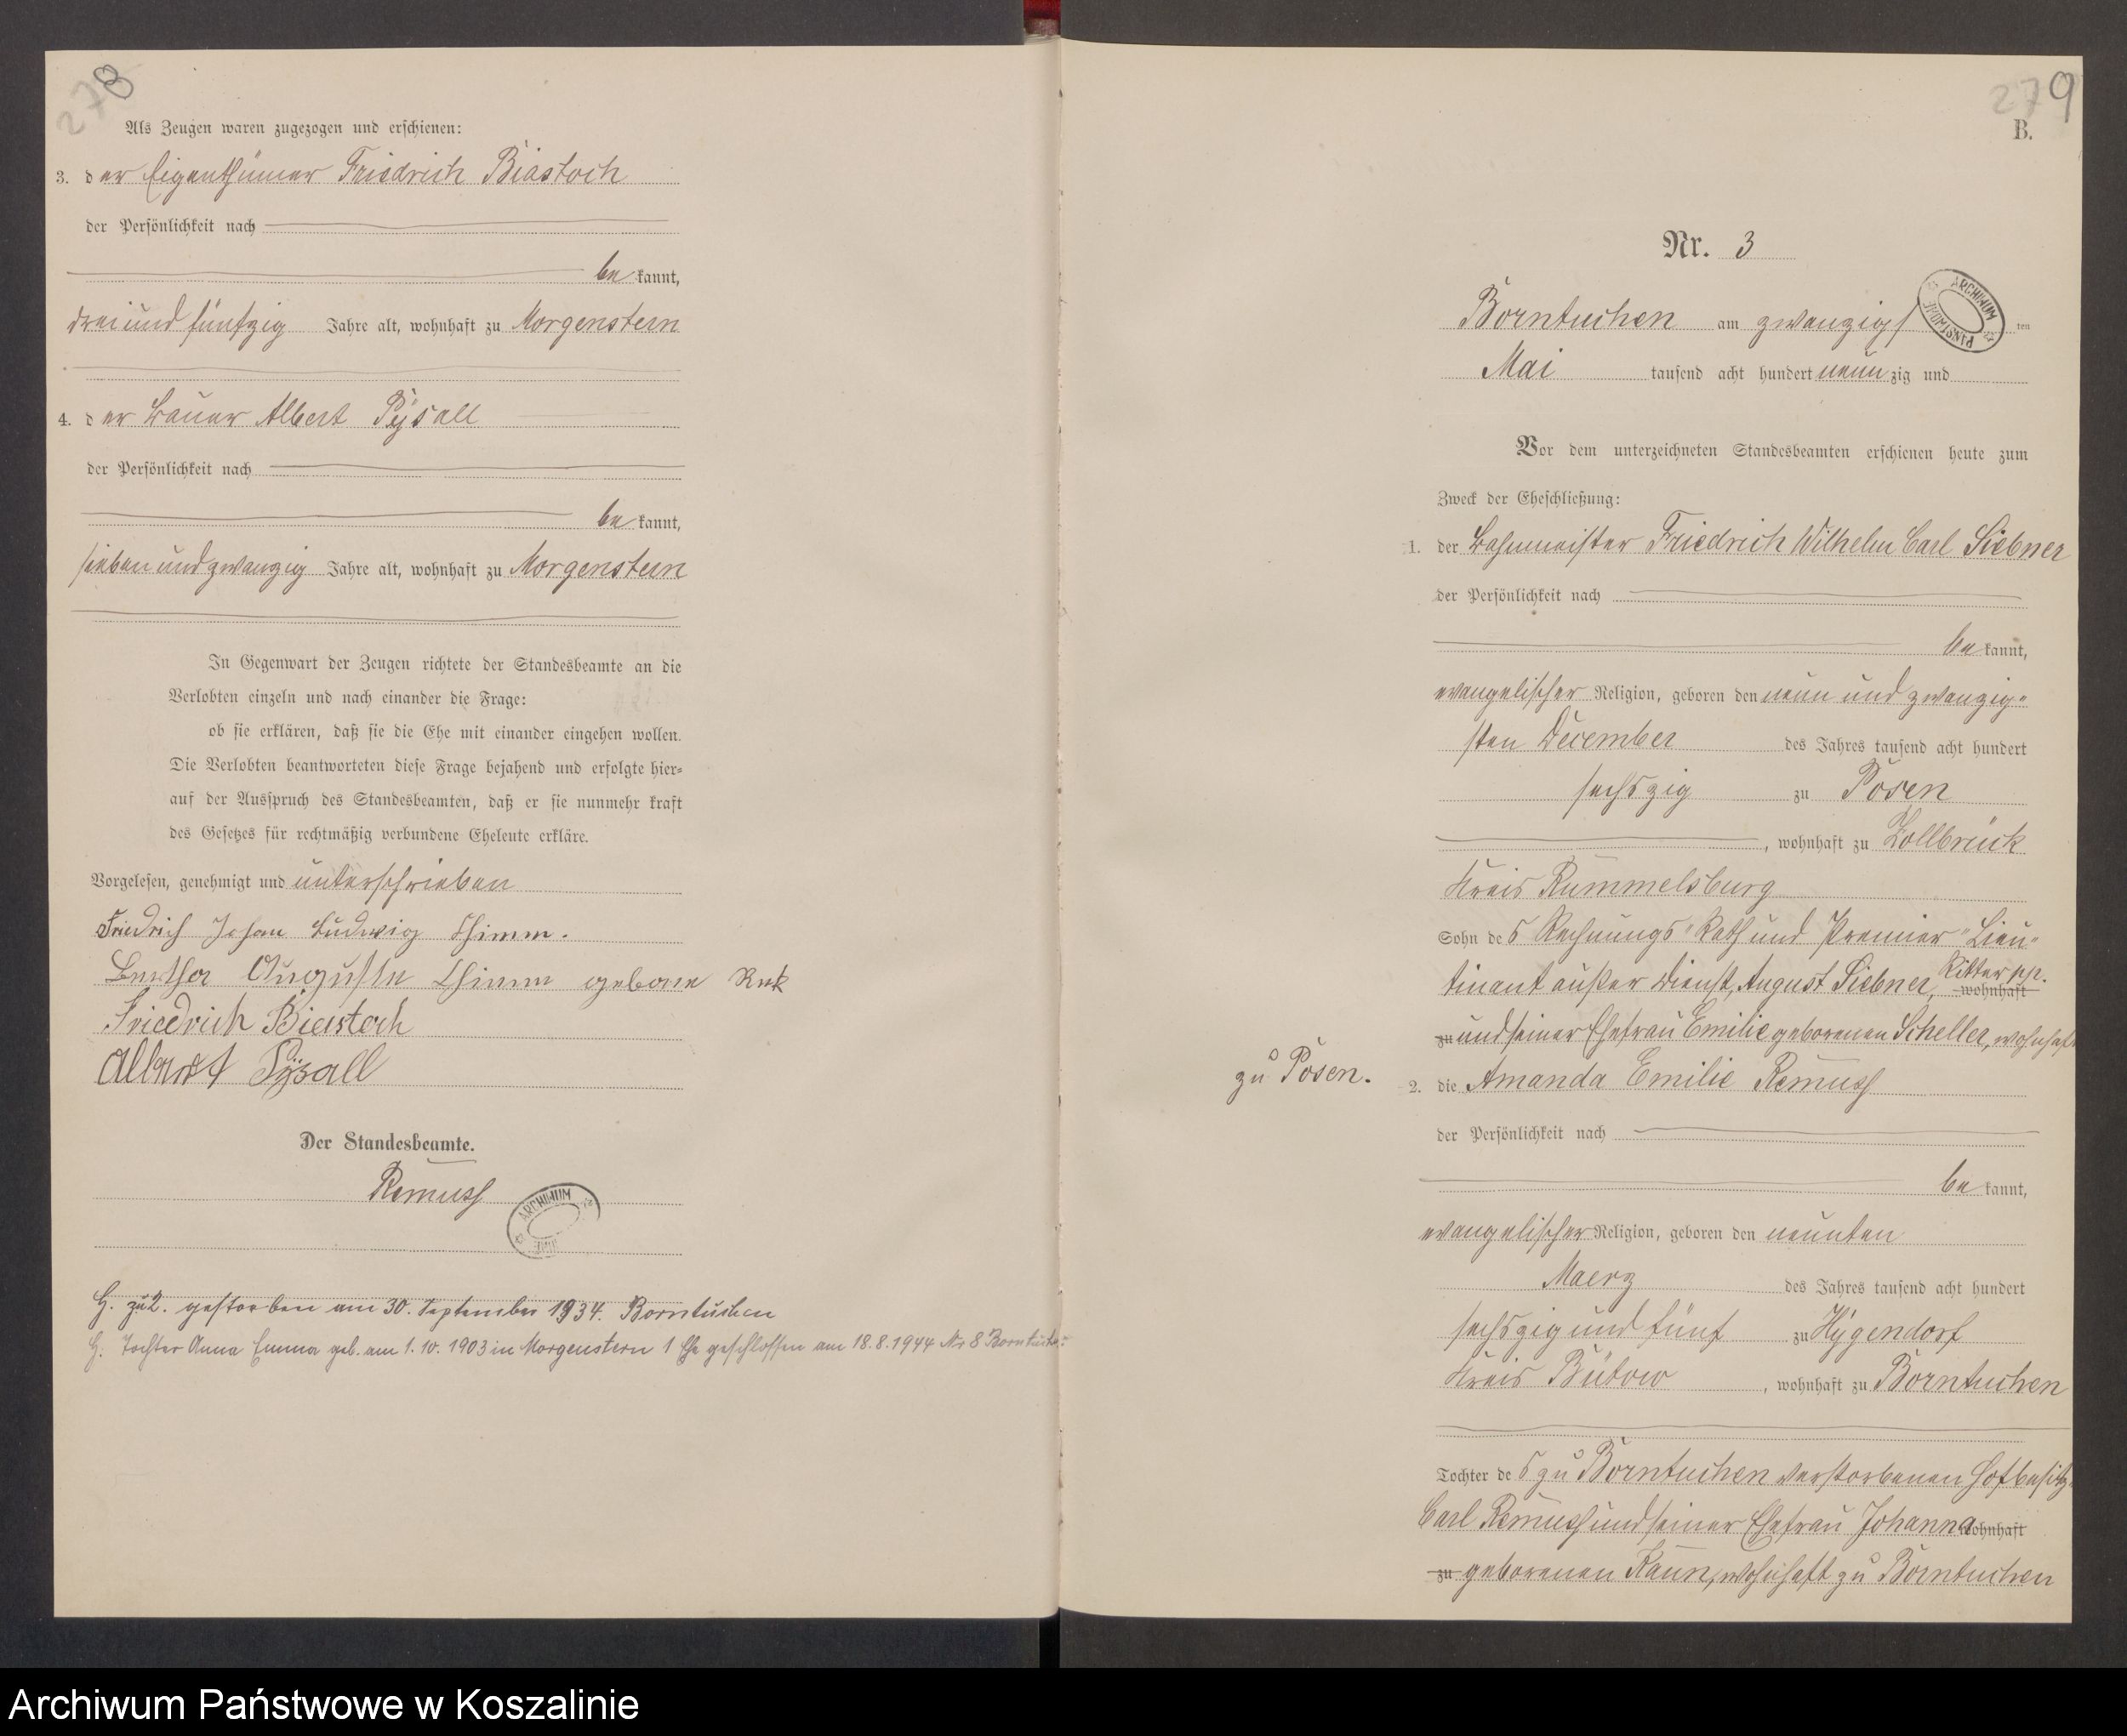 278
Als Zeugen waren zugezogen und erschienen:
3. der Eigenthümer Friedrich Biastoch
der Persönlichkeit nach
be kannt,
drei und fünfzig Jahre alt, wohnhaft zu Morgenstern
4. der Bauer Albert Pÿsall
der Persönlichkeit nach
be kannt,
sieben und zwanzig Jahre alt, wohnhaft zu Morgenstern
In Gegenwart der Zeugen richtete der Standesbeamte an die
Verlobten einzeln und nach einander die Frage:
ob sie erklären, daß sie die Ehe mit einander eingehen wollen.
Die Verlobten beantworteten diese Frage bejahend und erfolgte hier-
auf der Ausspruch des Standesbeamten, daß er sie nunmehr kraft
des Gesetzes für rechtmäßig verbundene Eheleute erkläre.
Vorgelesen, genehmigt und unterschrieben
Friedrich Johan Ludwig Thimm.
Bertha Auguste Thimm geborne
Friedrich Biastoch
Albert Pÿsall
Der Standesbeamte.
Remuss
ARCHIWUM
H. zu 2. gestorben am 30. September 1934. Borntuchen
H. Tochter Anna Emma geb. am 1. 10. 1903 in Morgenstern 1 Ehe geschlossen am 18.8.1944 Nr 8 Borntuch.
279
B.
Nr. 3
ARCHIWUM PAŃSTWOWE
Borntuchen am zwanzigs ten
Mai tausend acht hundert neun zig und
Vor dem unterzeichneten Standesbeamten erschienen heute zum
Zweck der Eheschließung:
1. der Bahnmeister Friedrich Wilhelm Carl Siebner
der Persönlichkeit nach
be kannt,
evangelischer Religion, geboren den neun und zwanzig-
sten December des Jahres tausend acht hundert
sechszig zu Posen
, wohnhaft zu Zollbrück
Kreis Rummelsburg
Sohn des Rechnungs-Rath und Premier-Lieu-
tinant außer Dienst, August Siebner, Ritter pp. wohnhaft
zu und seiner Ehefrau Emilie geborenen Scheller, wohnhaft
zu Posen.
2. die Amanda Emilie Remuss
der Persönlichkeit nach
be kannt,
evangelischer Religion, geboren den neunten
Maerz des Jahres tausend acht hundert
sechszig und fünf zu Hygendorf
Kreis Bütow , wohnhaft zu Borntuchen
Tochter des zu Borntuchen verstorbenen Hofbesitz-
Carl Remuss und seiner Ehefrau Johanna wohnhaft
zu geborenen Kaun, wohnhaft zu Borntuchen
Archiwum Państwowe w Koszalinie